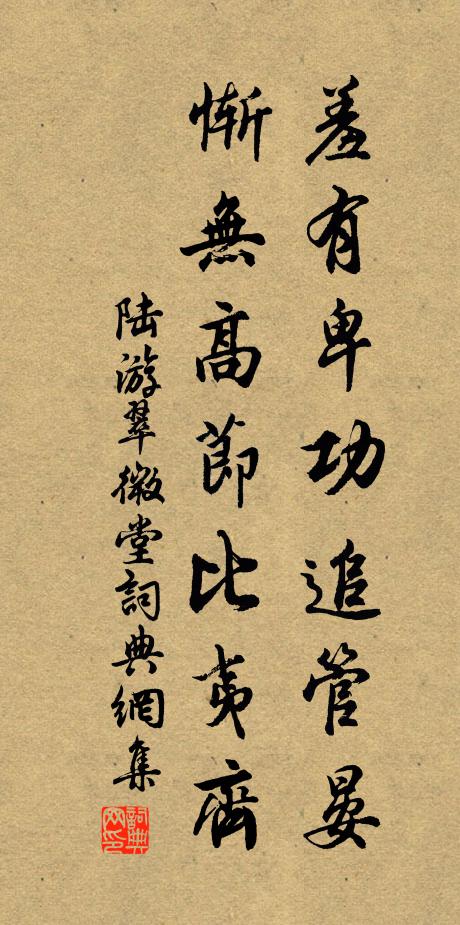 羞有卑功追管晏
慚無高節比夷齊
陆游翠微堂詞典網集
詞典网印